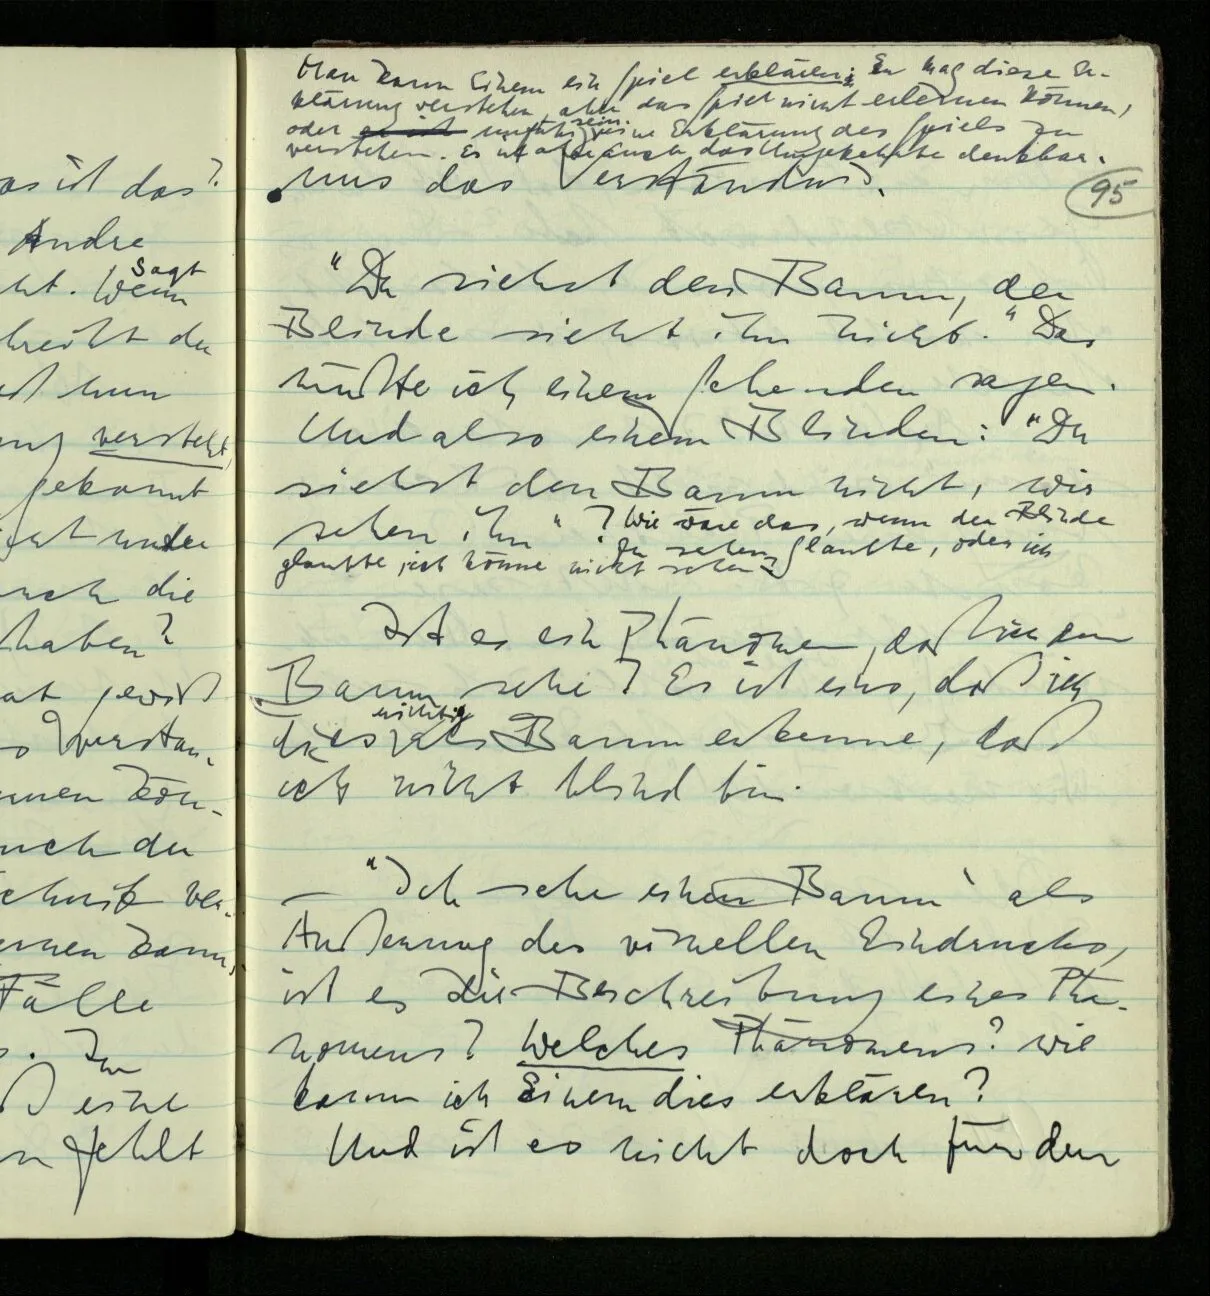 as ist das?
Andre
ht. Wenn
sagt
hreibt der
nun
ung versteht,
gekonnt
ht unter
urch die
haben?
at gewiß
so Verstan-
nnen kön-
uch der
chnik ver-
ernen kann,
Fälle
s. Im
ß eine
n fehlt
Man kann Einem ein Spiel erklären: Er mag diese Er-
klärung verstehen aber das Spiel nicht erlernen können,
oder unfähig sein, eine Erklärung des Spiels zu
verstehen. Es ist aber auch das Umgekehrte denkbar.
uns das Verständnis.
95
"Du siehst den Baum, der
Blinde sieht ihn nicht." Das
müßte ich einem Sehenden sagen.
Und also einem Blinden: "Du
siehst den Baum nicht, wir
sehen ihn"? Wie wäre das, wenn der Blinde
zu sehen glaubte, oder ich
glaubte, ich könne nicht sehen?
Ist es ein Phänomen, daß ich den
Baum sehe? Es ist eins, daß ich
dies richtig als Baum erkenne, daß
ich nicht blind bin.
– "Ich sehe einen Baum" als
Äußerung des visuellen Eindrucks,
ist es die Beschreibung eines Phä-
nomens? Welches Phänomens? Wie
kann ich Einem dies erklären?
Und ist es nicht doch für den